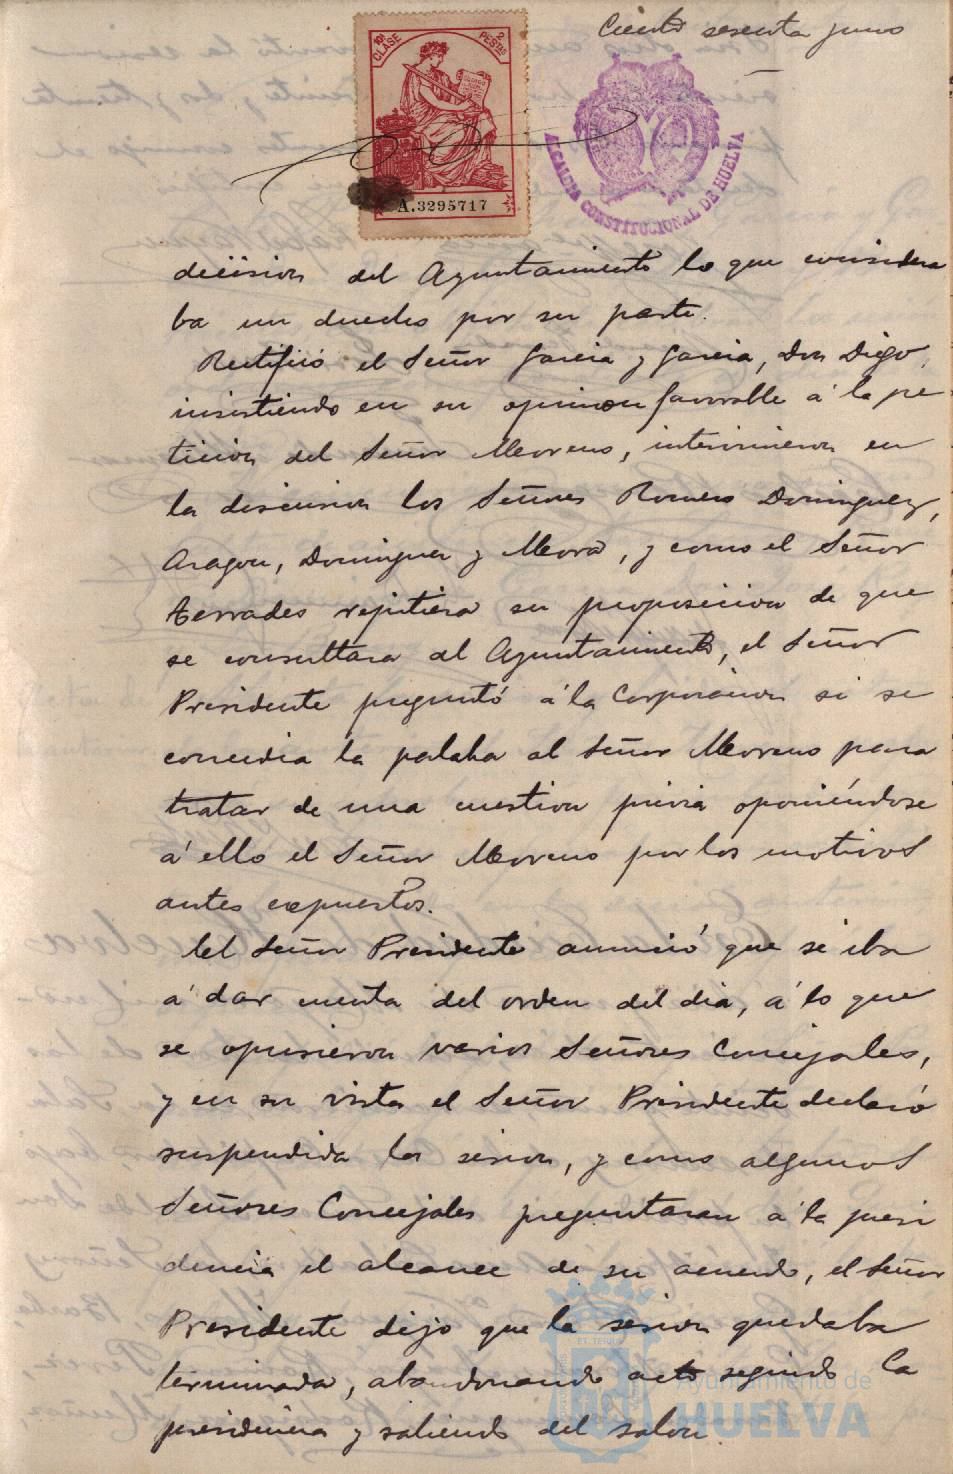 Ciento sesenta y uno
10ª CLASE 2 PESTAS
A.3295717
ALCALDIA CONSTITUCIONAL DE HUELVA
decision del Ayuntamiento lo que considera
ba un deber por su parte.
Rectificó el Señor Garcia y Garcia, Don Diego,
insistiendo en su opinion favorable á la pe
ticion del Señor Moreno, intervinieron en
la discusion los Señores Romero Dominguez,
Aragon, Dominguez y Mora, y como el Señor
Terrades repitiera su proposicion de que
se consultara al Ayuntamiento, el Señor
Presidente preguntó á la Corporacion si se
concedia la palaba al Señor Moreno para
tratar de una cuestion previa oponiéndose
á ello el Señor Moreno por los motivos
antes expuestos.
El Señor Presidente anunció que se iba
á dar cuenta del orden del dia, á lo que
se opusieron varios Señores Concejales,
y en su vista el Señor Presidente declaró
suspendida la sesion, y como algunos
Señores Concejales preguntaran á la presi
dencia el alcance de su acuerdo, el Señor
Presidente dijo que la sesion quedaba
terminada, abandonando acto seguido la
presidencia y saliendo del salon.
Ayuntamiento de
HUELVA